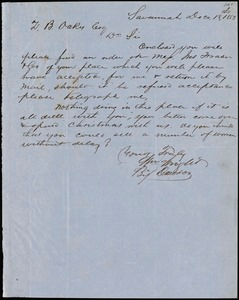 Savannah Dec 19, 1853
Z. B. Oakes Esq
Dr Sir
Enclosed you will
please find an order on Messrs Jno Fraser
& Co of your place which you will please
have accepted for me & return it by
mail, should it be refused acceptance
please telegraph me.
Nothing doing in this place if it is
all dull with you, you better come over
& spend Christmas with us, do you think
that you could sell a number of women
without delay?
Yours Truly
Wm Wright